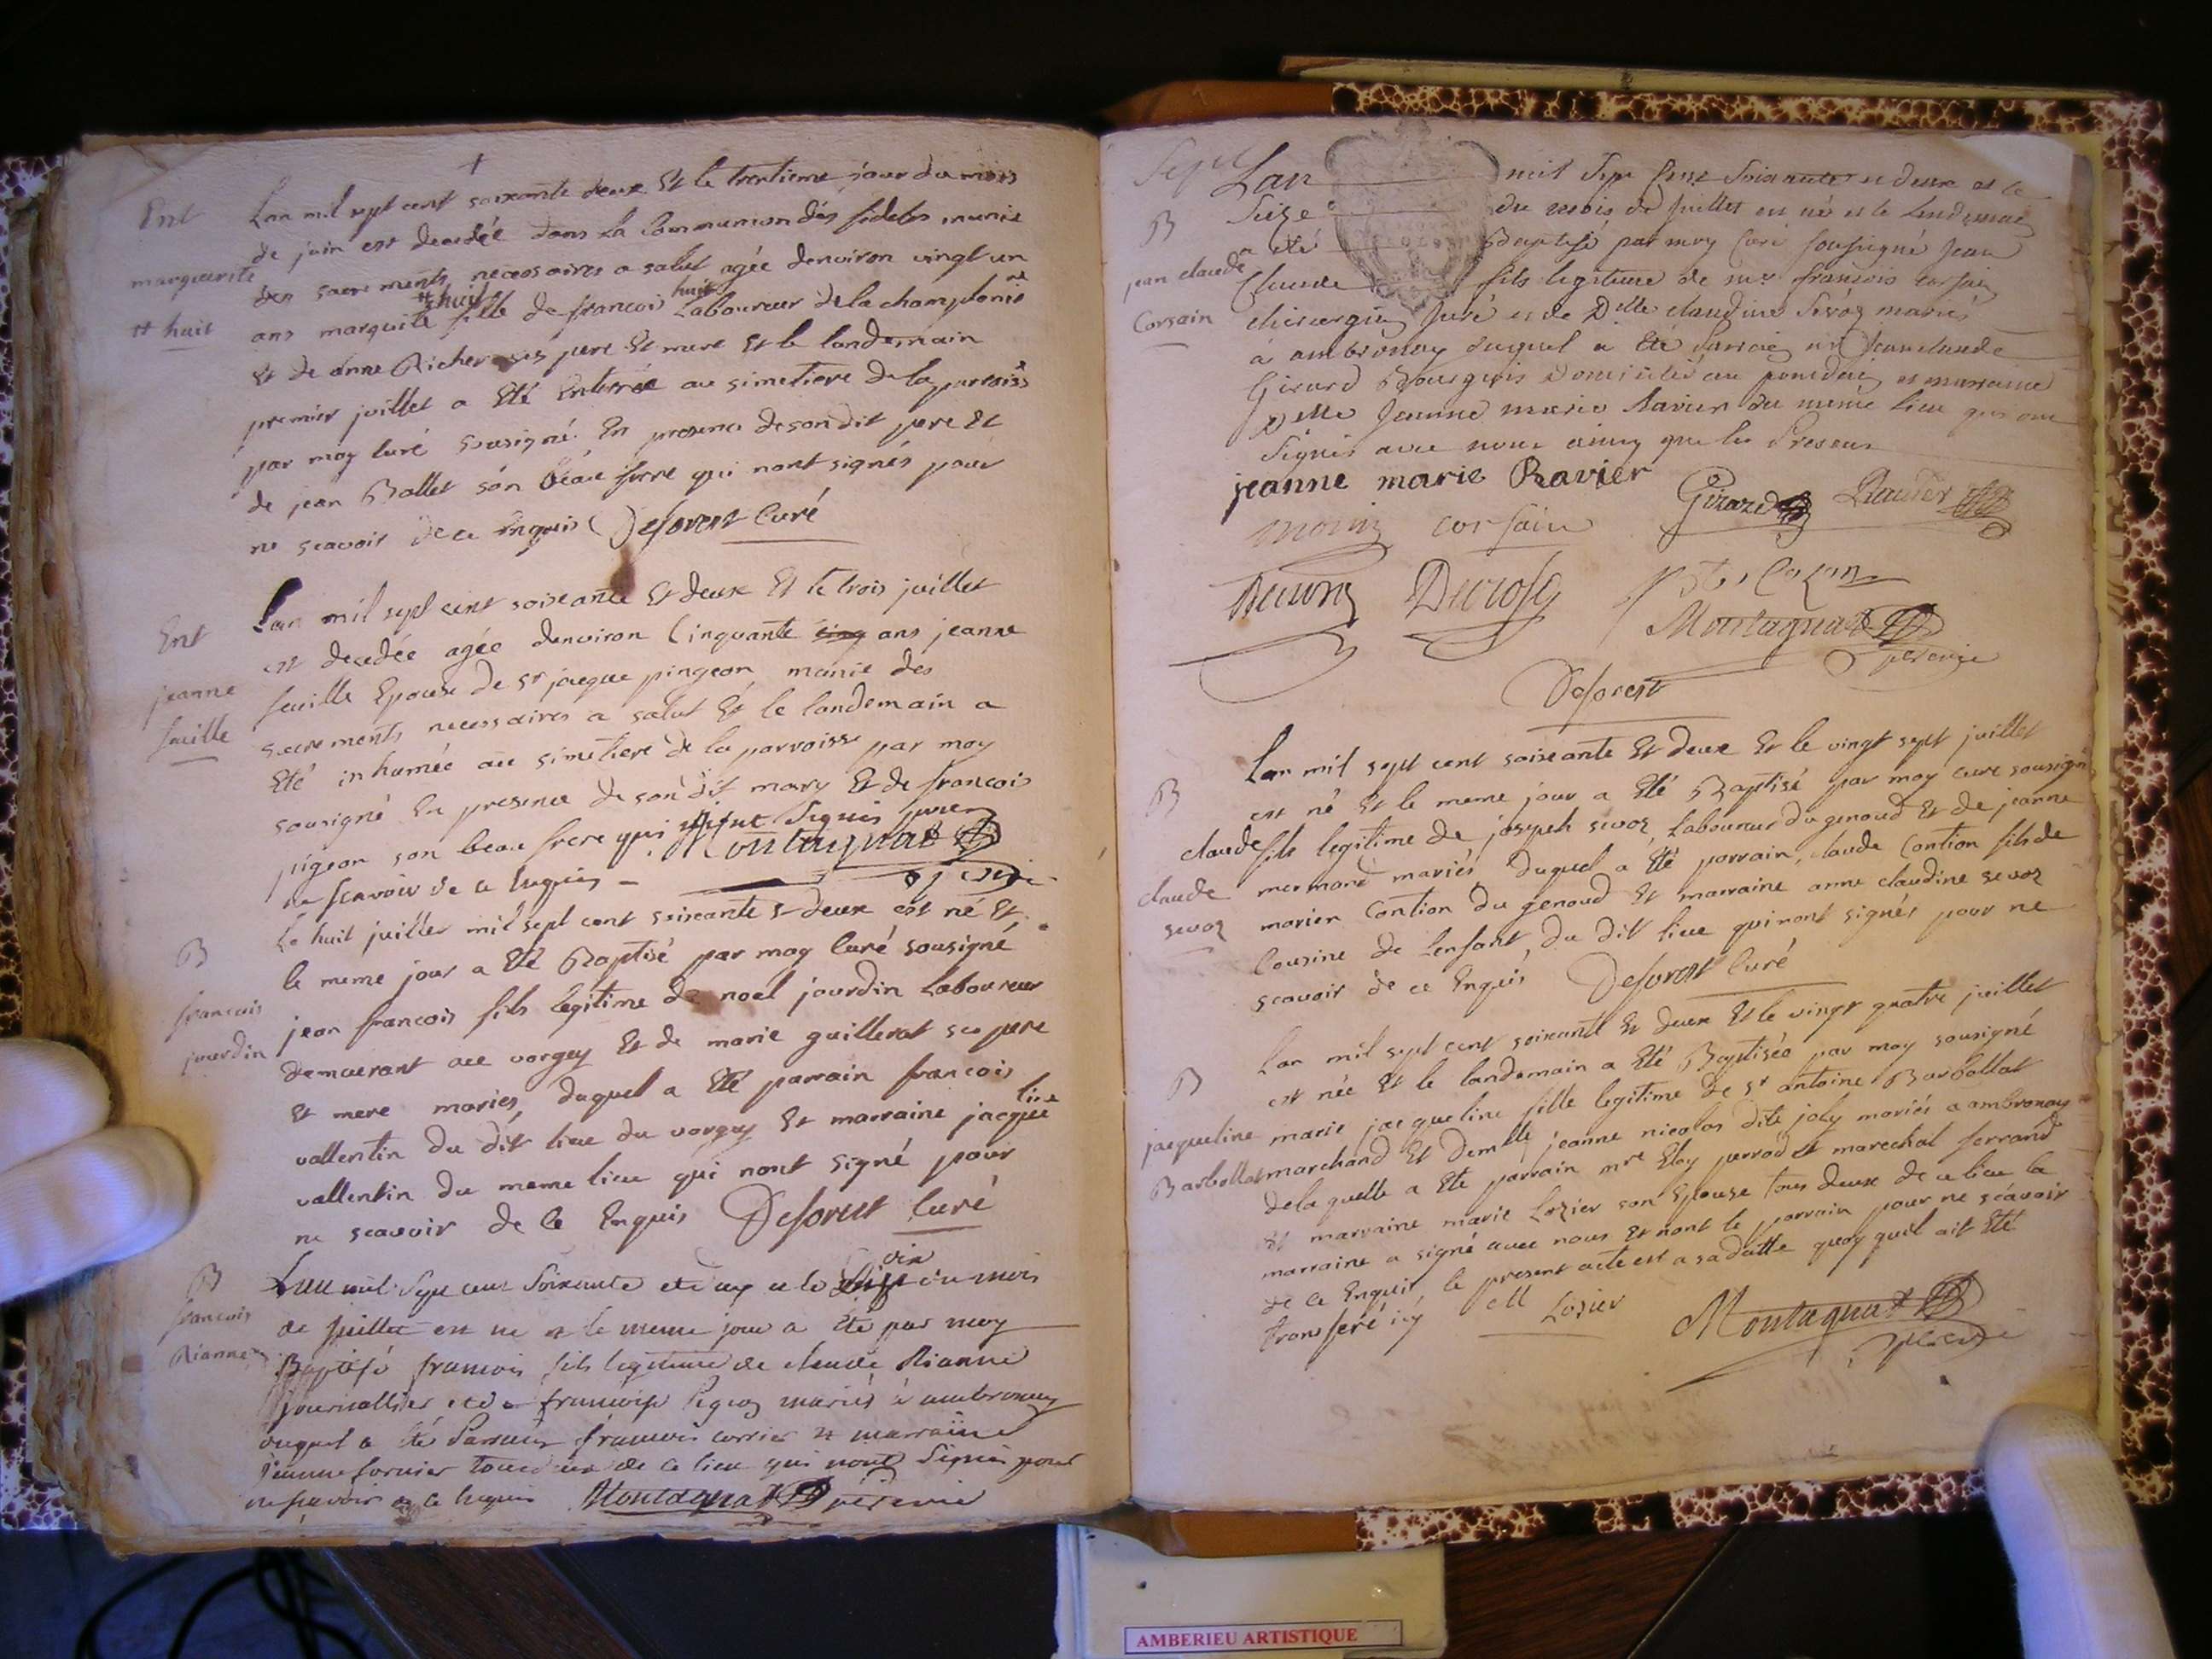 Ent
marguerite
huit
Lan mil sept cent soixante deux Et le trentieme jour du mois
de juin est decedée dans la Communion dés fideles munie
des sacrements necessaires a salut agée denviron vingt un
ans marguite huit fille de francois huit Laboureur de la champlonie
Et de anne Richer ses pere Et mere Et le landemain
premier juillet a Eté Enterrée au simetiere de la parroiss
par moy Curé sousigné En presence de son dit pere Et
de jean Ballet són beau frere qui nont signés pour
ne scavoir de ce Enquis Deforest Curé
Ent
jeanne
fuille
Lan mil sept cent soixante Et deux Et le trois juillet
est decedée agée denviron Cinquante cinq ans jeanne
fuille Epouse de sr jacque pingeon munie des
sacrements necessaires a salut Et le landemain a
Eté inhumée au simetiere de la parroisse par moy
sousigné En presence de son dit mary Et de francois
pigeon son beau frere qui nont signés pour
ne scavoir de ce Enquis Montagnat
B
francois
jourdin
Le huit juillet mil sept cent soixante Et deux est né Et
le meme jour a Eté Baptisé par moy Curé sousigné
jean francois fils legitime de noel jourdin Laboureur
demeurant au vorgey Et de marie guillerat ses pere
Et mere mariés, duquel a Eté parrain francois
vallentin du dit lieu du vorgey Et marraine jacqueline
vallentin du meme lieu qui nont signé pour
ne scavoir de ce Enquis Deforest Curé
B
francois
Rianne
Lan mil Sept cent Soixante et deux et le dix du mois
de Juillet est né et le meme jour a Eté par moy
Baptisé francois fils legitime de claude Rianne
journallier et de francoise mariés à ambronay
duquel a été Parrain francois corrier et marraine
Jeanne fornier tous deux de ce lieu qui nont Signés pour
ne scavoir de ce Enquis Montagnat
B
jean claude
Corsain
Lan mil Sept Cent Soixante et deux et le
Seize du mois de Juillet est né et le lendemain
a été Baptisé par moy Curé soussigné Jean
Claude fils legitime de mr françois corsain
chirurgien Juré et de Dlle claudine Sevoz mariés
à ambronay duquel a été Parrain sr Jean claude
Girard Bourgeois Domicilié au et marraine
Dlle Jeanne marie Ravier du meme lieu qui ont
Signés avec nous ainsy que les Presens
jeanne marie Ravier Girard Ravier
corsain
Montagnat
Deforest
B
claude
sevoz
Lan mil sept cent soixante Et deux Et le vingt sept juillet
est né Et le meme jour a Eté Baptisé par moy cure sousigné
claude fils legitime de joseph sevoz, Laboureur du genoud Et de jeanne
mermand mariés duquel a Eté parrain, claude Contion fils de
marien Contion du genoud Et marraine anne claudine sevoz
Cousine de Lenfant, du dit lieu qui nont signés pour ne
scavoir de ce Enquis Deforest Curé
B
jacqueline
Barbollat
Lan mil sept cent soixante Et deux Et le vingt quatre juillet
est née Et le landemain a Eté Baptisée par moy sousigné
marie jacqueline fille legitime de sr antoine Barbollat
marchand Et demlle jeanne nicolas dite joly mariés a ambronay
de la quelle a Eté parrain mre Eloy perrodet marechal ferrand
Et marraine marie Lozier son Epouse tous deux de ce lieu la
marraine a signé avec nous Et nont le parrain pour ne scavoir
de ce Enquis, le present acte est a sa datte quoy quil ait Eté
transferé icy M Lozier Montagnat
AMBERIEU ARTISTIQUE